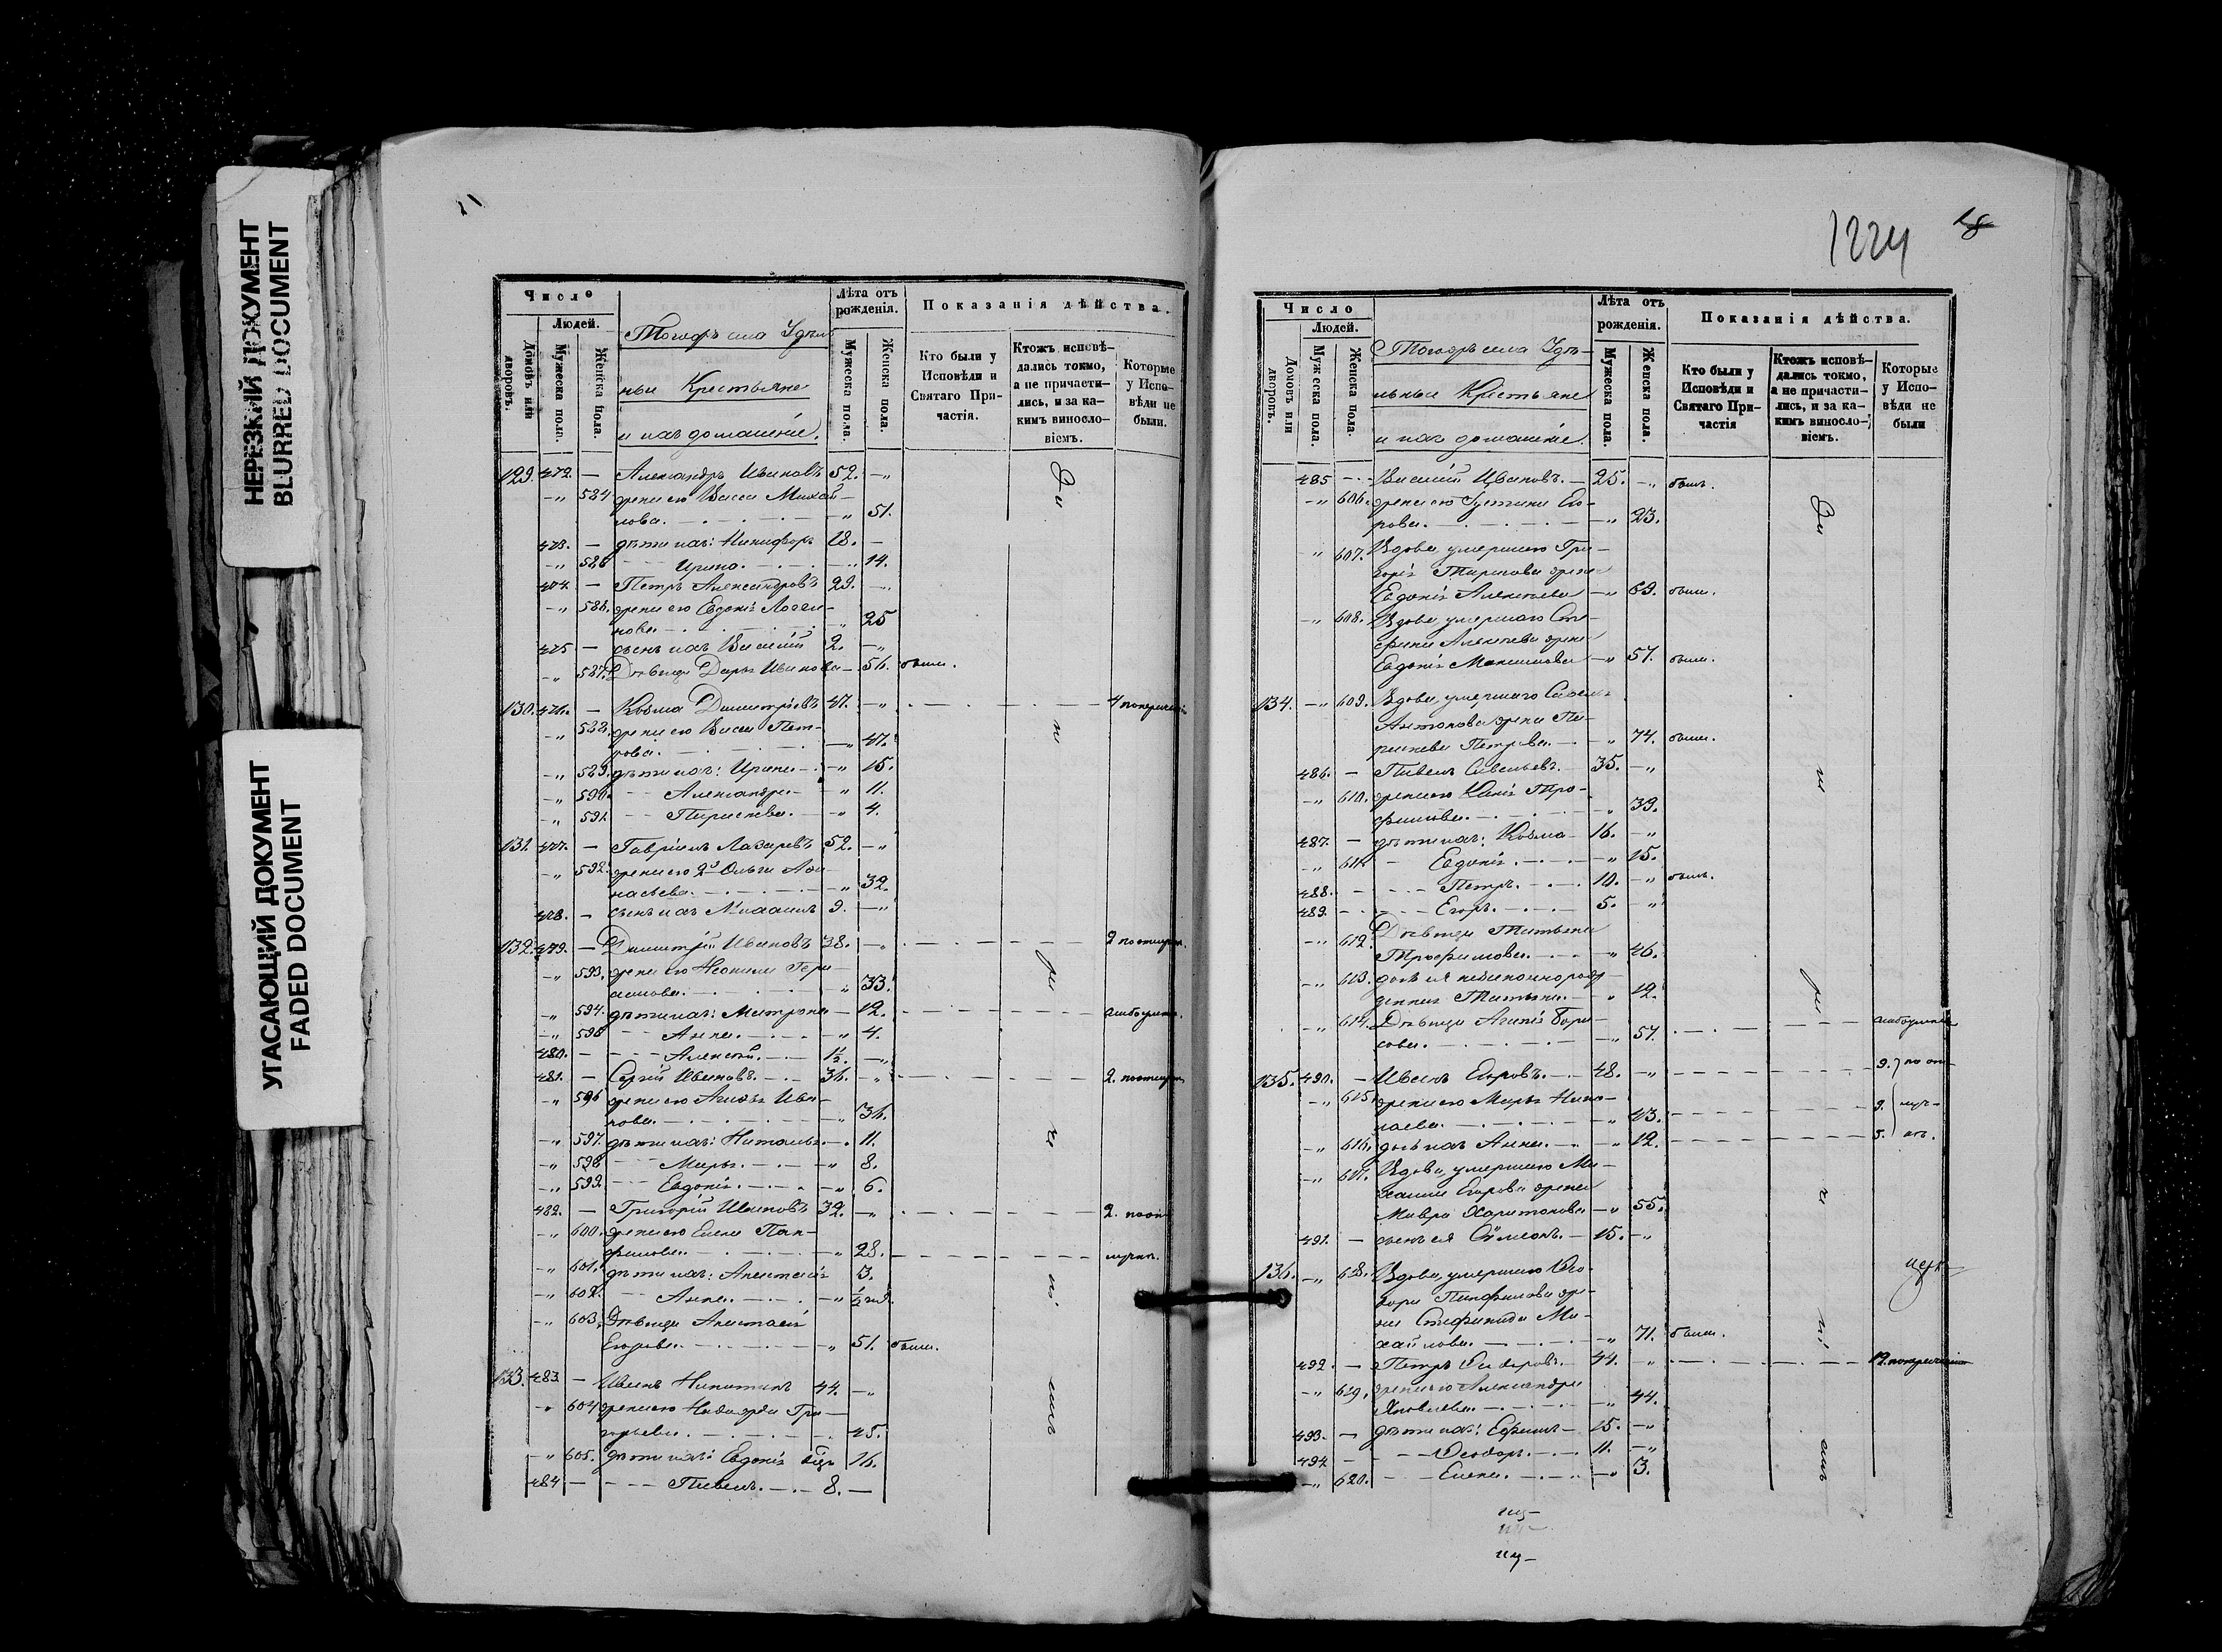 НЕРЕЗКИЙ ДОКУМЕНТ
BLURRED DOCUMENT
УГАСАЮЩИЙ ДОКУМЕНТ
FADED DOCUMENT
Число
Людей.
Домовъ или дворовъ.
Мужеска пола.
Женска пола.
Тогожъ села Удѣль
ные Крестьяне
и ихъ домашніе.
Лѣта отъ рожденія.
Мужеска пола.
Женска пола.
Показанія дѣйства.
Кто были у Исповѣди и Святаго Причастія.
Ктожъ исповѣдались токмо, а не причастились, и за какимъ винословіемъ.
Которые у Исповѣди не были.
129. 472. — Александръ Ивановъ 52. — „
— „ 584 жена его Васса Михай—
лова. — „ 51.
473. — дѣти ихъ: Никифоръ 18. —
— „ 585 — Ирина. — 14.
474. — Петръ Александровъ 29. — „
— „ 586. жена его Евдокія
„ 25
475 — сынъ ихъ Василій 2. — „
„ 587. Дѣвица Дарья Иванова — 56. были.
130. 476. — Козма Димитріевъ 47. — „
— „ 588. жена его Васса Пет—
рова. — „ 47.
— „ 589. дѣти ихъ: Ирина — „ 15.
— „ 590. — Александра — „ 11.
— „ 591. — Параскева. — „ 4.
131. 477. — Гавріилъ Лазаревъ 52. — „
— „ 592. жена его 2я Ольга Афа—
насьева. — „ 32.
478. — сынъ ихъ Михаилъ 9. — „
132. 479. — Димитрій Ивановъ 38. — „
— „ 593. жена его Неонила Гера—
симова. — „ 33.
— „ 594. дѣти ихъ: Матрона — 12.
— „ 595 — Анна. — „ 4.
480. — Алексѣй. — 1½. — „
481. — Сергій Ивановъ. — 36. — „
— „ 596 жена его Агафья Ива—
нова. — „ 36.
— „ 597. дѣти ихъ: Наталья. — 11.
— „ 598 — Марья. — „ 8.
— „ 599. — Евдокія. — „ 6.
482. — Григорій Ивановъ 32. — „
— „ 600. жена его Елена Пан—
филова. — „ 28.
— „ 601. дѣти ихъ: Анастасія 3.
— „ 602. — Анна. — „ ½
— „ 603. Дѣвица Анастасія
Егорова. — „ 51. были.
133. 483. — Иванъ Никитинъ 44. — „
— „ 604 жена его Надежда Гри—
горьева. — 45.
— „ 605. дѣти ихъ: Евдокія 16.
484 — — Павелъ. — 8. —
1224
18
Число
Людей.
Домовъ или дворовъ.
Мужеска пола.
Женска пола.
Тогожъ села Удѣ—
льные Крестьяне
и ихъ домашніе.
Лѣта отъ рожденія.
Мужеска пола.
Женска пола.
Показанія дѣйства.
Кто были у Исповѣди и Святаго Причастія
Ктожъ исповѣдались токмо, а не причастились, и за какимъ винословіемъ.
Которые у Исповѣди не были
485 — Василій Ивановъ. — 25. — „ былъ.
— „ 606. жена его Устинья Его—
рова. — „ 23.
„ 607. Вдова, умершаго Гри—
горія жена
Евдокія Алексѣева — „ 69. были.
— „ 608. Вдова, умершаго Сте—
фана Алексѣева жена
Евдокія Максимова — „ 57. были.
134. — „ 609. Вдова, умершаго Савелья
Антонова жена Па—
раскева Петрова. — „ 74. были.
486. — Павелъ Савельевъ. — 35. — „
— „ 610. жена его Ксенія Тро—
фимова. — „ 39.
487. — дѣти ихъ: Козма — 16. — „
— „ 611. — Евдокія. — „ 15.
488. — Петръ. — 10. — „ былъ.
489. — Егоръ. — 5. — „
— „ 612. Дѣвица Татьяна
Трофимова. — „ 46.
— „ 613. дочь ея незаконнорож—
денная Татьяна. — „ 12.
— „ 614. Дѣвица Агапія Бори—
сова. — „ 57.
135. 490. — Иванъ Егоровъ. — 48. — „
— „ 615. жена его Марья Нико—
лаева. — „ 43.
— „ 616. дочь ихъ Анна. — „ 12.
— „ 617. Вдова, умершаго Ми—
хаила Егорова жена
Мавра Харитонова — „ 55.
491. — сынъ ея Сѵмеонъ. — 15. — „
136. — „ 618. Вдова, умершаго
Панфилова же—
на Стефанида Ми—
хайлова. — „ 71. были.
492. — Петръ — 44. — „
— „ 619. жена его Александра
Яковлева. — „ 44.
493. — дѣти ихъ: Ефимъ — 15. — „
494 — Ѳеодоръ. — 11. — „
— „ 620. — Елена. — „ 3.